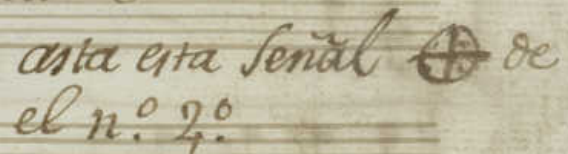 asta esta Señal de
el n.º 2º